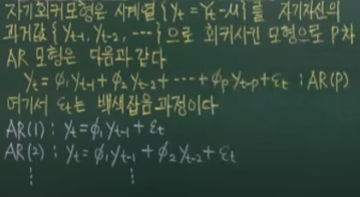 자기회귀모형은 시계열 {yₜ = Yₜ-μ}를 자기자신의
과거값 {yₜ₋₁, yₜ₋₂, ⋯} 으로 회귀시킨 모형으로 P차
AR 모형은 다음과 같다
yₜ = φ₁yₜ₋₁ + φ₂yₜ₋₂ + ⋯ + φₚyₜ₋ₚ + εₜ : AR(P)
여기서 εₜ는 백색잡음과정이다
AR(1) : yₜ = φ₁yₜ₋₁ + εₜ
AR(2) : yₜ = φ₁yₜ₋₁ + φ₂yₜ₋₂ + εₜ
⋮ ⋮